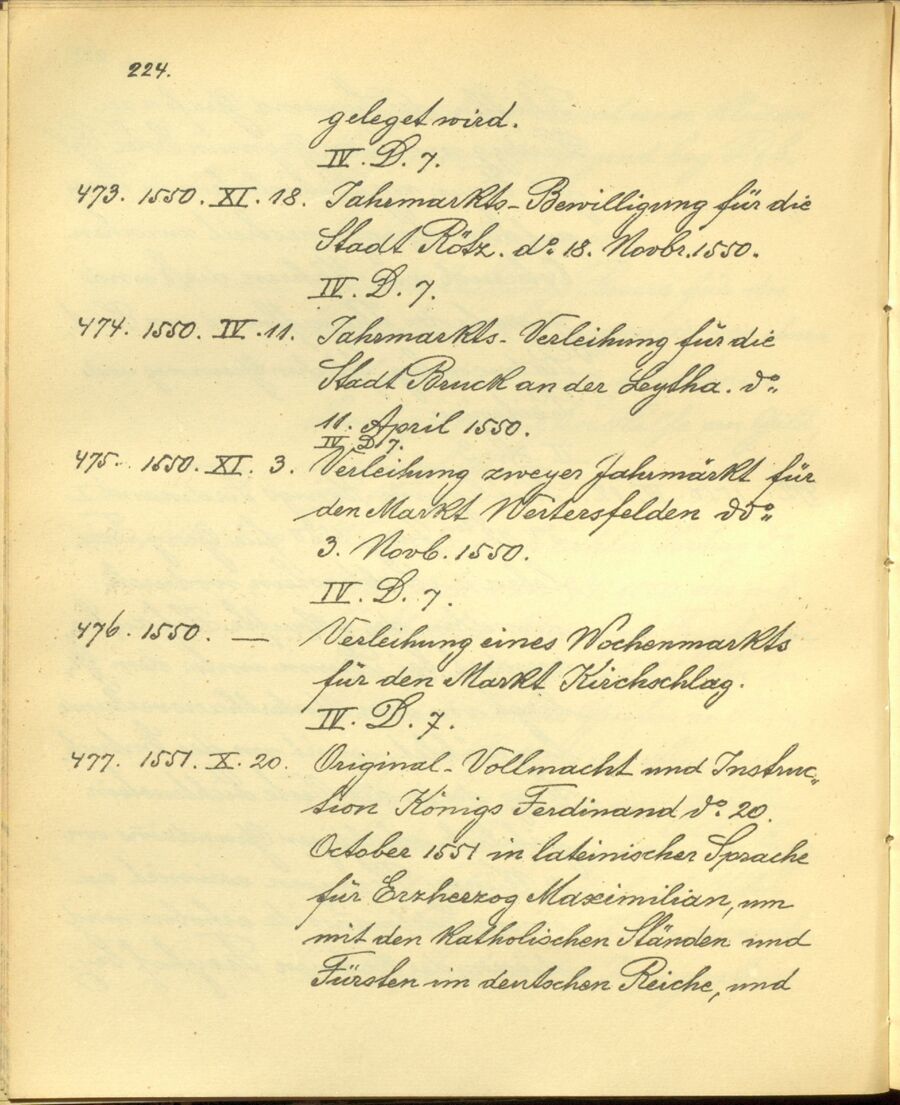 224.
geleget wird.
IV. D. 7.
473. 1550. XI. 18. Jahrmarkts-Bewilligung für die
Stadt Rötz. do 18. Novbr. 1550.
IV. D. 7.
474. 1550. IV. 11. Jahrmarkts-Verleihung für die
Stadt Bruck an der Leytha. do„
11. April 1550.
IV. D. 7.
475. 1550. XI. 3. Verleihung zweyer Jahrmärkt für
den Markt Wertersfelden ddo„
3. Novb. 1550.
IV. D. 7.
476. 1550. — Verleihung eines Wochenmarkts
für den Markt Kirchschlag.
IV. D. 7.
477. 1551. X. 20. Original-Vollmacht und Instruc„
tion Königs Ferdinand do. 20.
October 1551 in lateinischer Sprache
für Erzherzog Maximilian, um
mit den katholischen Ständen und
Fürsten im deutschen Reiche, und